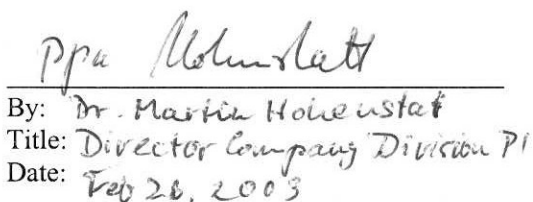 ppa Hohenstatt
By: Dr. Martin Hohenstat
Title: Director Company Division PI
Date: Feb 26, 2003